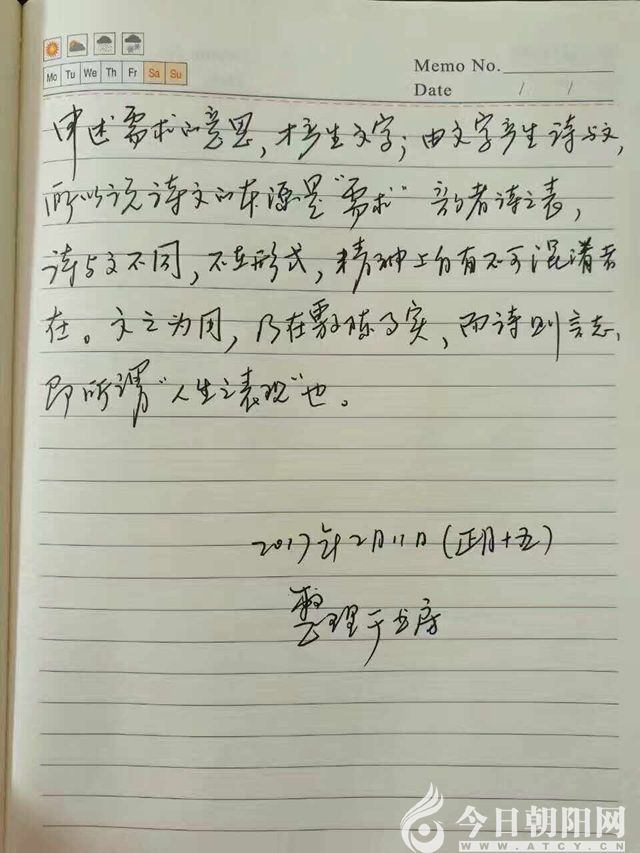 Mo Tu We Th Fr Sa Su
Memo No.
Date / /
申述需求的意思，才产生文字；由文字产生诗与文，
所以说诗文的本源是“需求”韵者诗之表，
诗与文不同，不在形式，精神上自有不可混淆者
在。文之为用，乃在敷陈事实，而诗则言志，
即所谓“人生之表现”也。
2017年2月11日（正月十五）
整理于书房
今日朝阳网
WWW.ATCY.CN